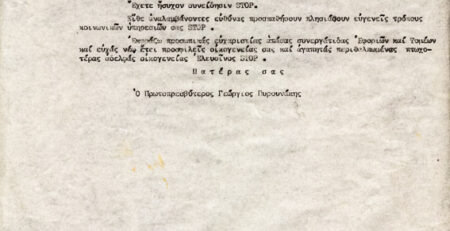 Ἔχετε ἥσυχον συνείδησιν STOP.
Εἴθε ἀναλαμβάνοντες εὐθύνας προσπαθήσουν πλησιάσουν εὐγενεῖς τρόπους
κοινωνικῶν ὑπηρεσιῶν σας STOP .
Ἐκφράζω προσωπικάς εὐχαριστίας ἁπάσας συνεργάτιδας Ἐφοριῶν καί Τομέων
καί εὐχάς νέῳ ἔτει προσφιλεῖς οἰκογενείας σας καί ἀγαπητάς περιθαλπομένας πτωχο-
τέρας ἀδελφάς οἰκογενείας Ἐλευσῖνος STOP .
Π α τ έ ρ α ς σ α ς
Ὁ Πρωτοπρεσβύτερος Γεώργιος Πυρουνάκης